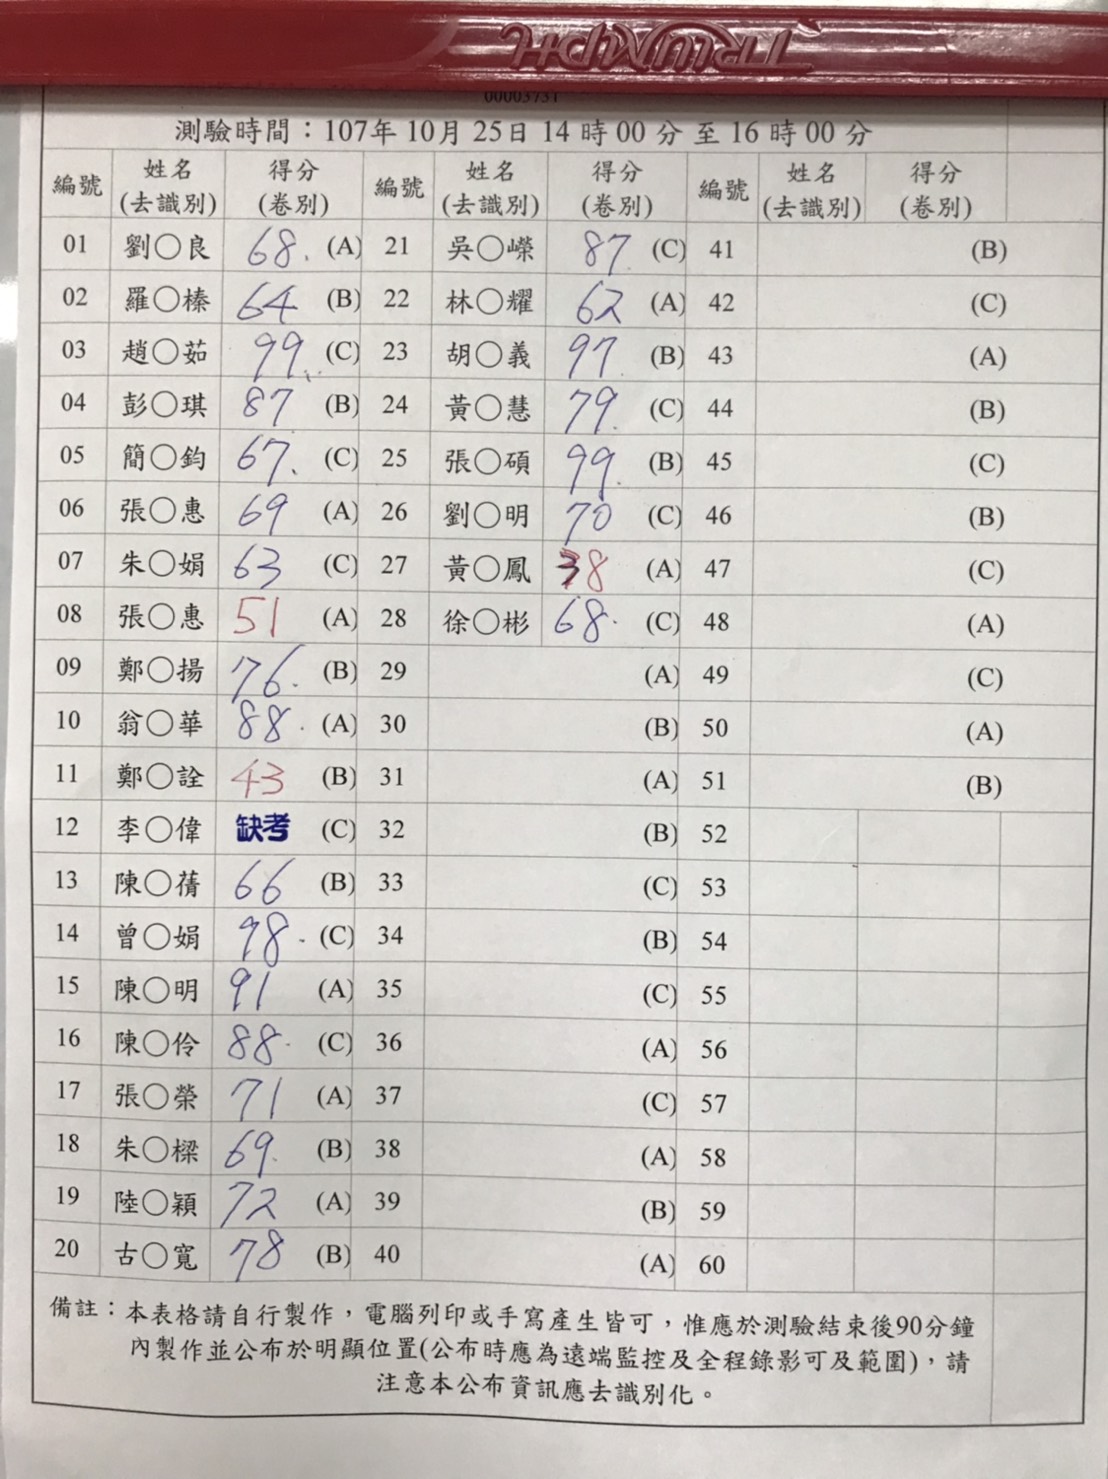 TRIUMPH
00003731
測驗時間：107年 10月 25日 14 時 00 分 至 16 時 00 分
編號 姓名(去識別) 得分(卷別) 編號 姓名(去識別) 得分(卷別) 編號 姓名(去識別) 得分(卷別)
01 劉○良 68. (A) 21 吳○嶸 87. (C) 41 (B)
02 羅○榛 64 (B) 22 林○耀 62 (A) 42 (C)
03 趙○茹 99. (C) 23 胡○義 97. (B) 43 (A)
04 彭○琪 87 (B) 24 黃○慧 79. (C) 44 (B)
05 簡○鈞 67. (C) 25 張○碩 99. (B) 45 (C)
06 張○惠 69 (A) 26 劉○明 70 (C) 46 (B)
07 朱○娟 63 (C) 27 黃○鳳 38 (A) 47 (C)
08 張○惠 51 (A) 28 徐○彬 68. (C) 48 (A)
09 鄭○揚 76. (B) 29 (A) 49 (C)
10 翁○華 88. (A) 30 (B) 50 (A)
11 鄭○詮 43 (B) 31 (A) 51 (B)
12 李○偉 缺考 (C) 32 (B) 52
13 陳○蒨 66 (B) 33 (C) 53
14 曾○娟 98. (C) 34 (B) 54
15 陳○明 91 (A) 35 (C) 55
16 陳○伶 88. (C) 36 (A) 56
17 張○榮 71 (A) 37 (C) 57
18 朱○樑 69. (B) 38 (A) 58
19 陸○穎 72 (A) 39 (B) 59
20 古○寬 78 (B) 40 (A) 60
備註：本表格請自行製作，電腦列印或手寫產生皆可，惟應於測驗結束後90分鐘
內製作並公布於明顯位置(公布時應為遠端監控及全程錄影可及範圍)，請
注意本公布資訊應去識別化。